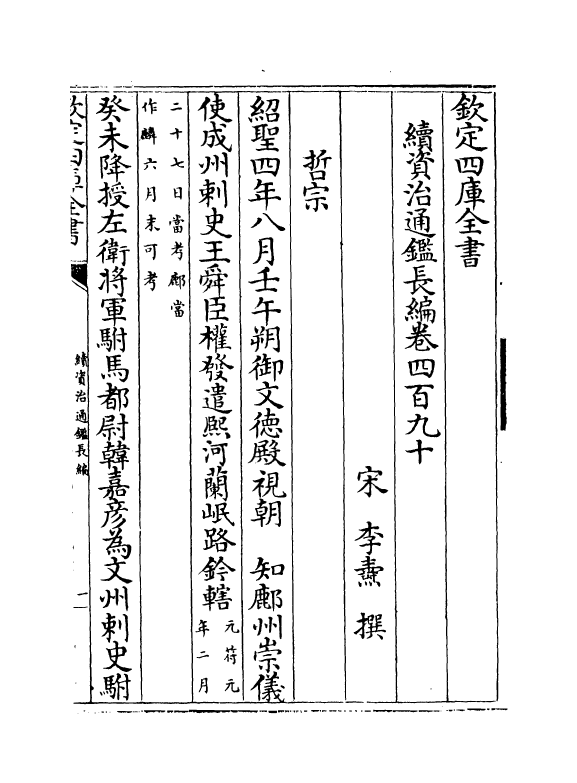 欽定四庫全書
續資治通鑑長編卷四百九十
宋　李燾　撰
哲宗
紹聖四年八月壬午朔御文徳殿視朝　知鄜州崇儀
使成州刺史王舜臣權發遣熙河蘭岷路鈐轄元符元
年二月
二十七日當考鄜當
作麟六月末可考
癸未降授左衛將軍駙馬都尉韓嘉彦為文州刺史駙
欽定四庫全書
續資治通鑑長編
一